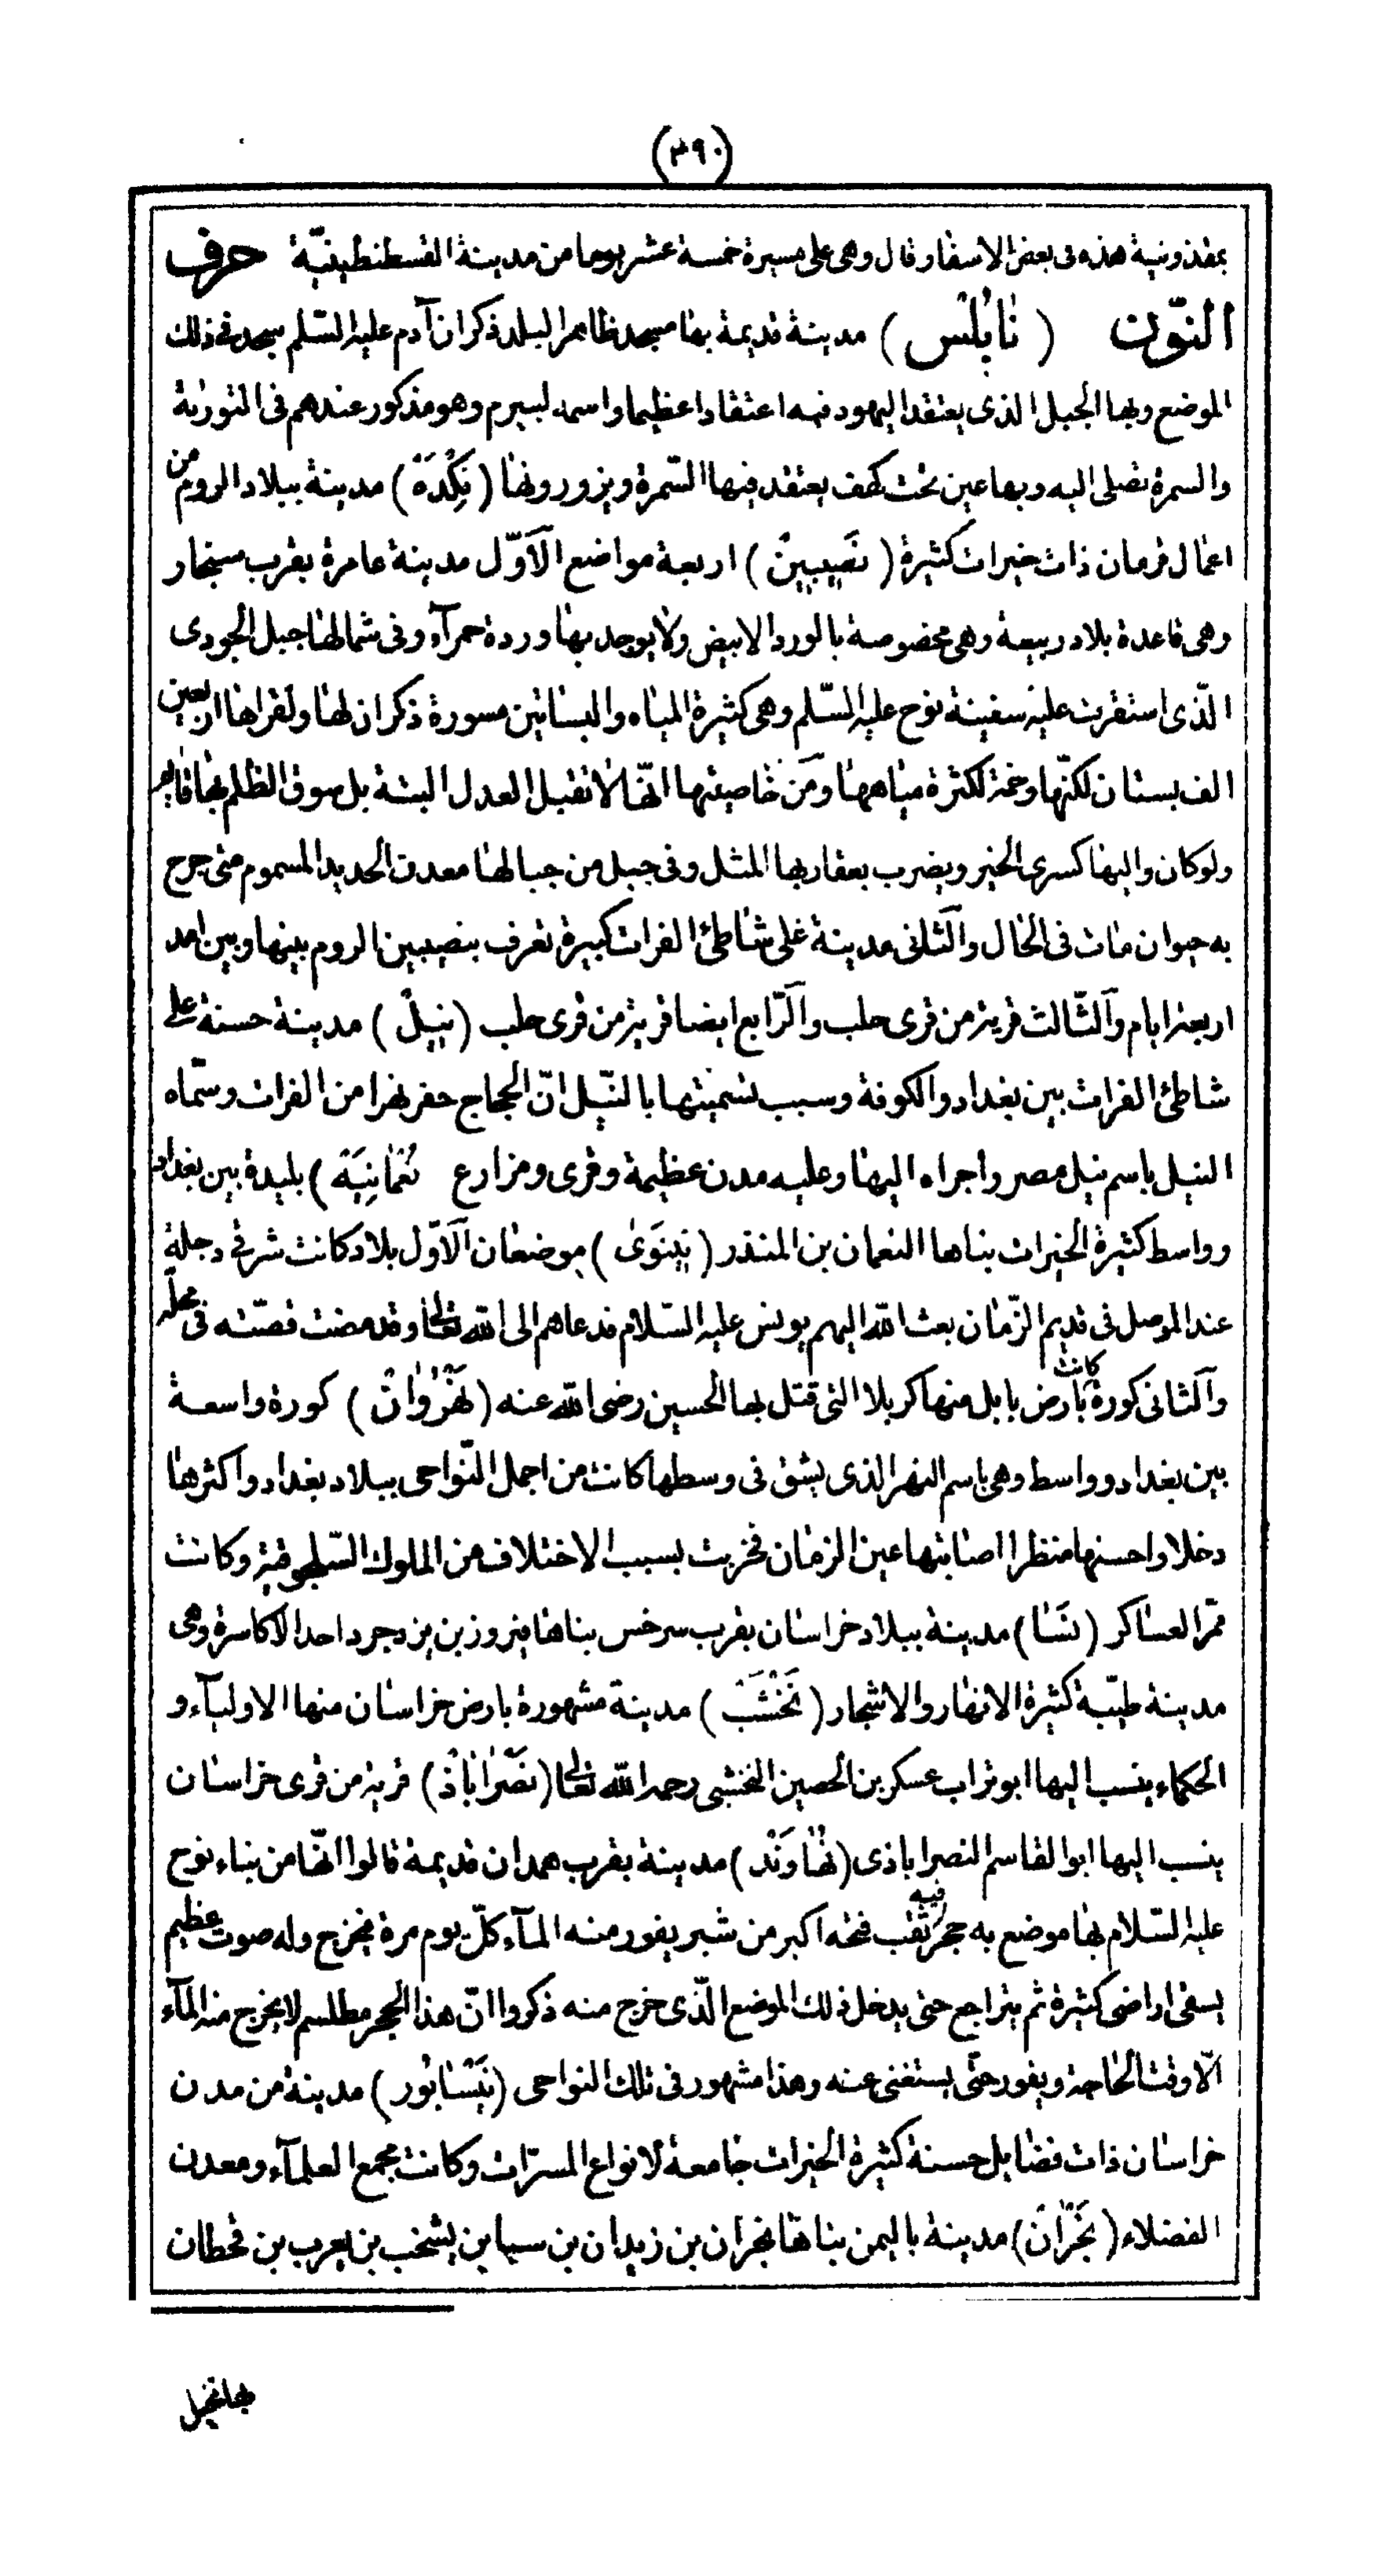 (٣٩٠)
بمقذونية هذه فى بعض الاسفار قال وهى على مسيرة خمسة عشر يوما من مدينة القسطنطينيّة حرف
النّون (نَابُلْسُ) مدينة قديمة بها مسجد ظاهر البلد ذكر ان آدم عليه السّلم سجد فى ذلك
الموضع وبها الجبل الذى يعتقد اليهود فيه اعتقادا عظيما واسمه لبيرم وهو مذكور عندهم فى التورية
والسمرة تصلى اليه وبها عين تحت كهف يعتقد فيها السّمرة ويزورونها (نَكِدَة) مدينة ببلاد الروم من
اعمال قرمان ذات خيرات كثيرة (نَصِيبِين) اربعة مواضع الاَوّل مدينة عامرة بقرب سنجار
وهى قاعدة بلاد ربيعة وهى مخصوصة بالورد الابيض ولا يوجد بها وردة حمرآء وفى شمالها جبل الجودى
الّذى استقرت عليه سفينة نوح عليه السّلم وهى كثيرة المياه والبساتين مسورة ذكر ان لها ولقراها اربعين
الف بستان لكنّها وخمة لكثرة مياهها ومن خاصيتها انّها لا تقبل العدل البتة بل سوق الظلم بها قايم
ولو كان واليها كسرى الخير ويضرب بعقاربها المثل وفى جبل من جبالها معدن الحديد المسموم متى جرح
به حيوان مات فى الحال والثانى مدينة على شاطئ الفرات كبيرة تعرف بنصيبين الروم بينها وبين امد
اربعة ايام والثّالث قرية من قرى حلب والرّابع ايضا قرية من قرى حلب (نِيِلُ) مدينة حسنة على
شاطئ الفرات بين بغداد والكوفة وسبب تسميتها بالنّيل انّ الحجاج حفر نهرا من الفرات وسمّاه
النيل باسم نيل مصر وأجراه اليها وعليه مدن عظيمة وقرى ومزارع نُعْمَانِيَة) بليدة بين بغداد
وواسط كثيرة الخيرات بناها النعمان بن المنذر (نِينَوَى) موضعان الاَوّل بلاد كانت شرقى دجلة
عند الموصل فى قديم الزّمان بعث الله اليهم يونس عليه السّلام فدعاهم الى الله تعالى وقد مضت قصّته فى محلّه
والثانى كورة كانت بارض بابل منها كربلا التى قتل بها الحسين رضى الله عنه (نَهْرُوَانُ) كورة واسعة
بين بغداد وواسط وهى باسم النهر الذى يشق فى وسطها كانت من اجمل النّواحى ببلاد بغداد واكثرها
دخلا واحسنها منظرا اصابتها عين الزمان فخربت بسبب الاختلاف من الملوك السّلجوقية وكانت
ممرّ العساكر (نَسَا) مدينة ببلاد خراسان بقرب سرخس بناها فيروز بن يزدجرد احد الاكاسرة وهى
مدينة طيّبة كثيرة الانهار والاشجار (نَخْشَبُ) مدينة مشهورة بارض خراسان منها الاوليآء و
الحكماء ينسب اليها ابو تراب عسكر بن الحصين النخشبى رحمه الله تعالى (نَصْرَابَاذُ) قرية من قرى خراسان
ينسب اليها ابو القاسم النصراباذى (نُهَاوَنْد) مدينة بقرب همدان قديمة قالوا انّها من بناء نوح
عليه السّلام بها موضع به حجر فيه ثقب فتحه اكبر من شبر يفور منه المآء كلّ يوم مرة فيخرج وله صوت عظيم
يسقى اراضى كثيرة ثم يتراجع حتى يدخل ذلك الموضع الّذى خرج منه ذكروا انّ هذا الحجر مطلسم لا يخرج منه المآء
الّا وقت الحاجة ويفور حتّى يستغنى عنه وهذا مشهور فى تلك النواحى (نَيْسَابُور) مدينة من مدن
خراسان ذات فضايل حسنة كثيرة الخيرات جامعة لانواع المسرّات وكانت مجمع العلمآء ومعدن
الفضلاء (نَجْرَانُ) مدينة باليمن بناها نجران بن زيدان بن سبا بن يشخب بن يعرب بن قحطان
بها نخيل